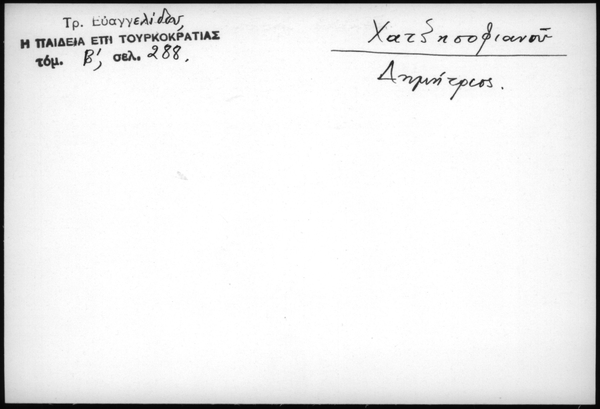 Τρ. Εὐαγγελίδου,
Η ΠΑΙΔΕΙΑ ΕΠΙ ΤΟΥΡΚΟΚΡΑΤΙΑΣ
τόμ. Β', σελ. 288.
Χατζησοφιανοῦ
Δημήτριος.